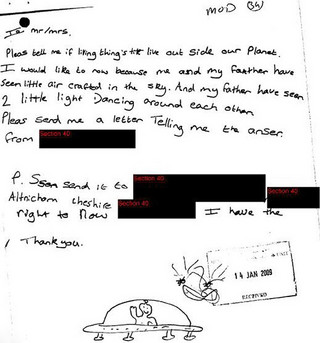 MOD (34)
mr/mrs.
Pleas tell me if liting thing's live out side our Planet.
I would like to now because me and my farther have
seen little air crafted in the sky. And my father have seen
2 little light Dancing around each other
Pleas send me a letter Telling me the anser.
from Section 40
P.S send it to Section 40
Altnicham cheshire Section 40 Section 40
right to Now I have the
Thank you.
14 JAN 2009